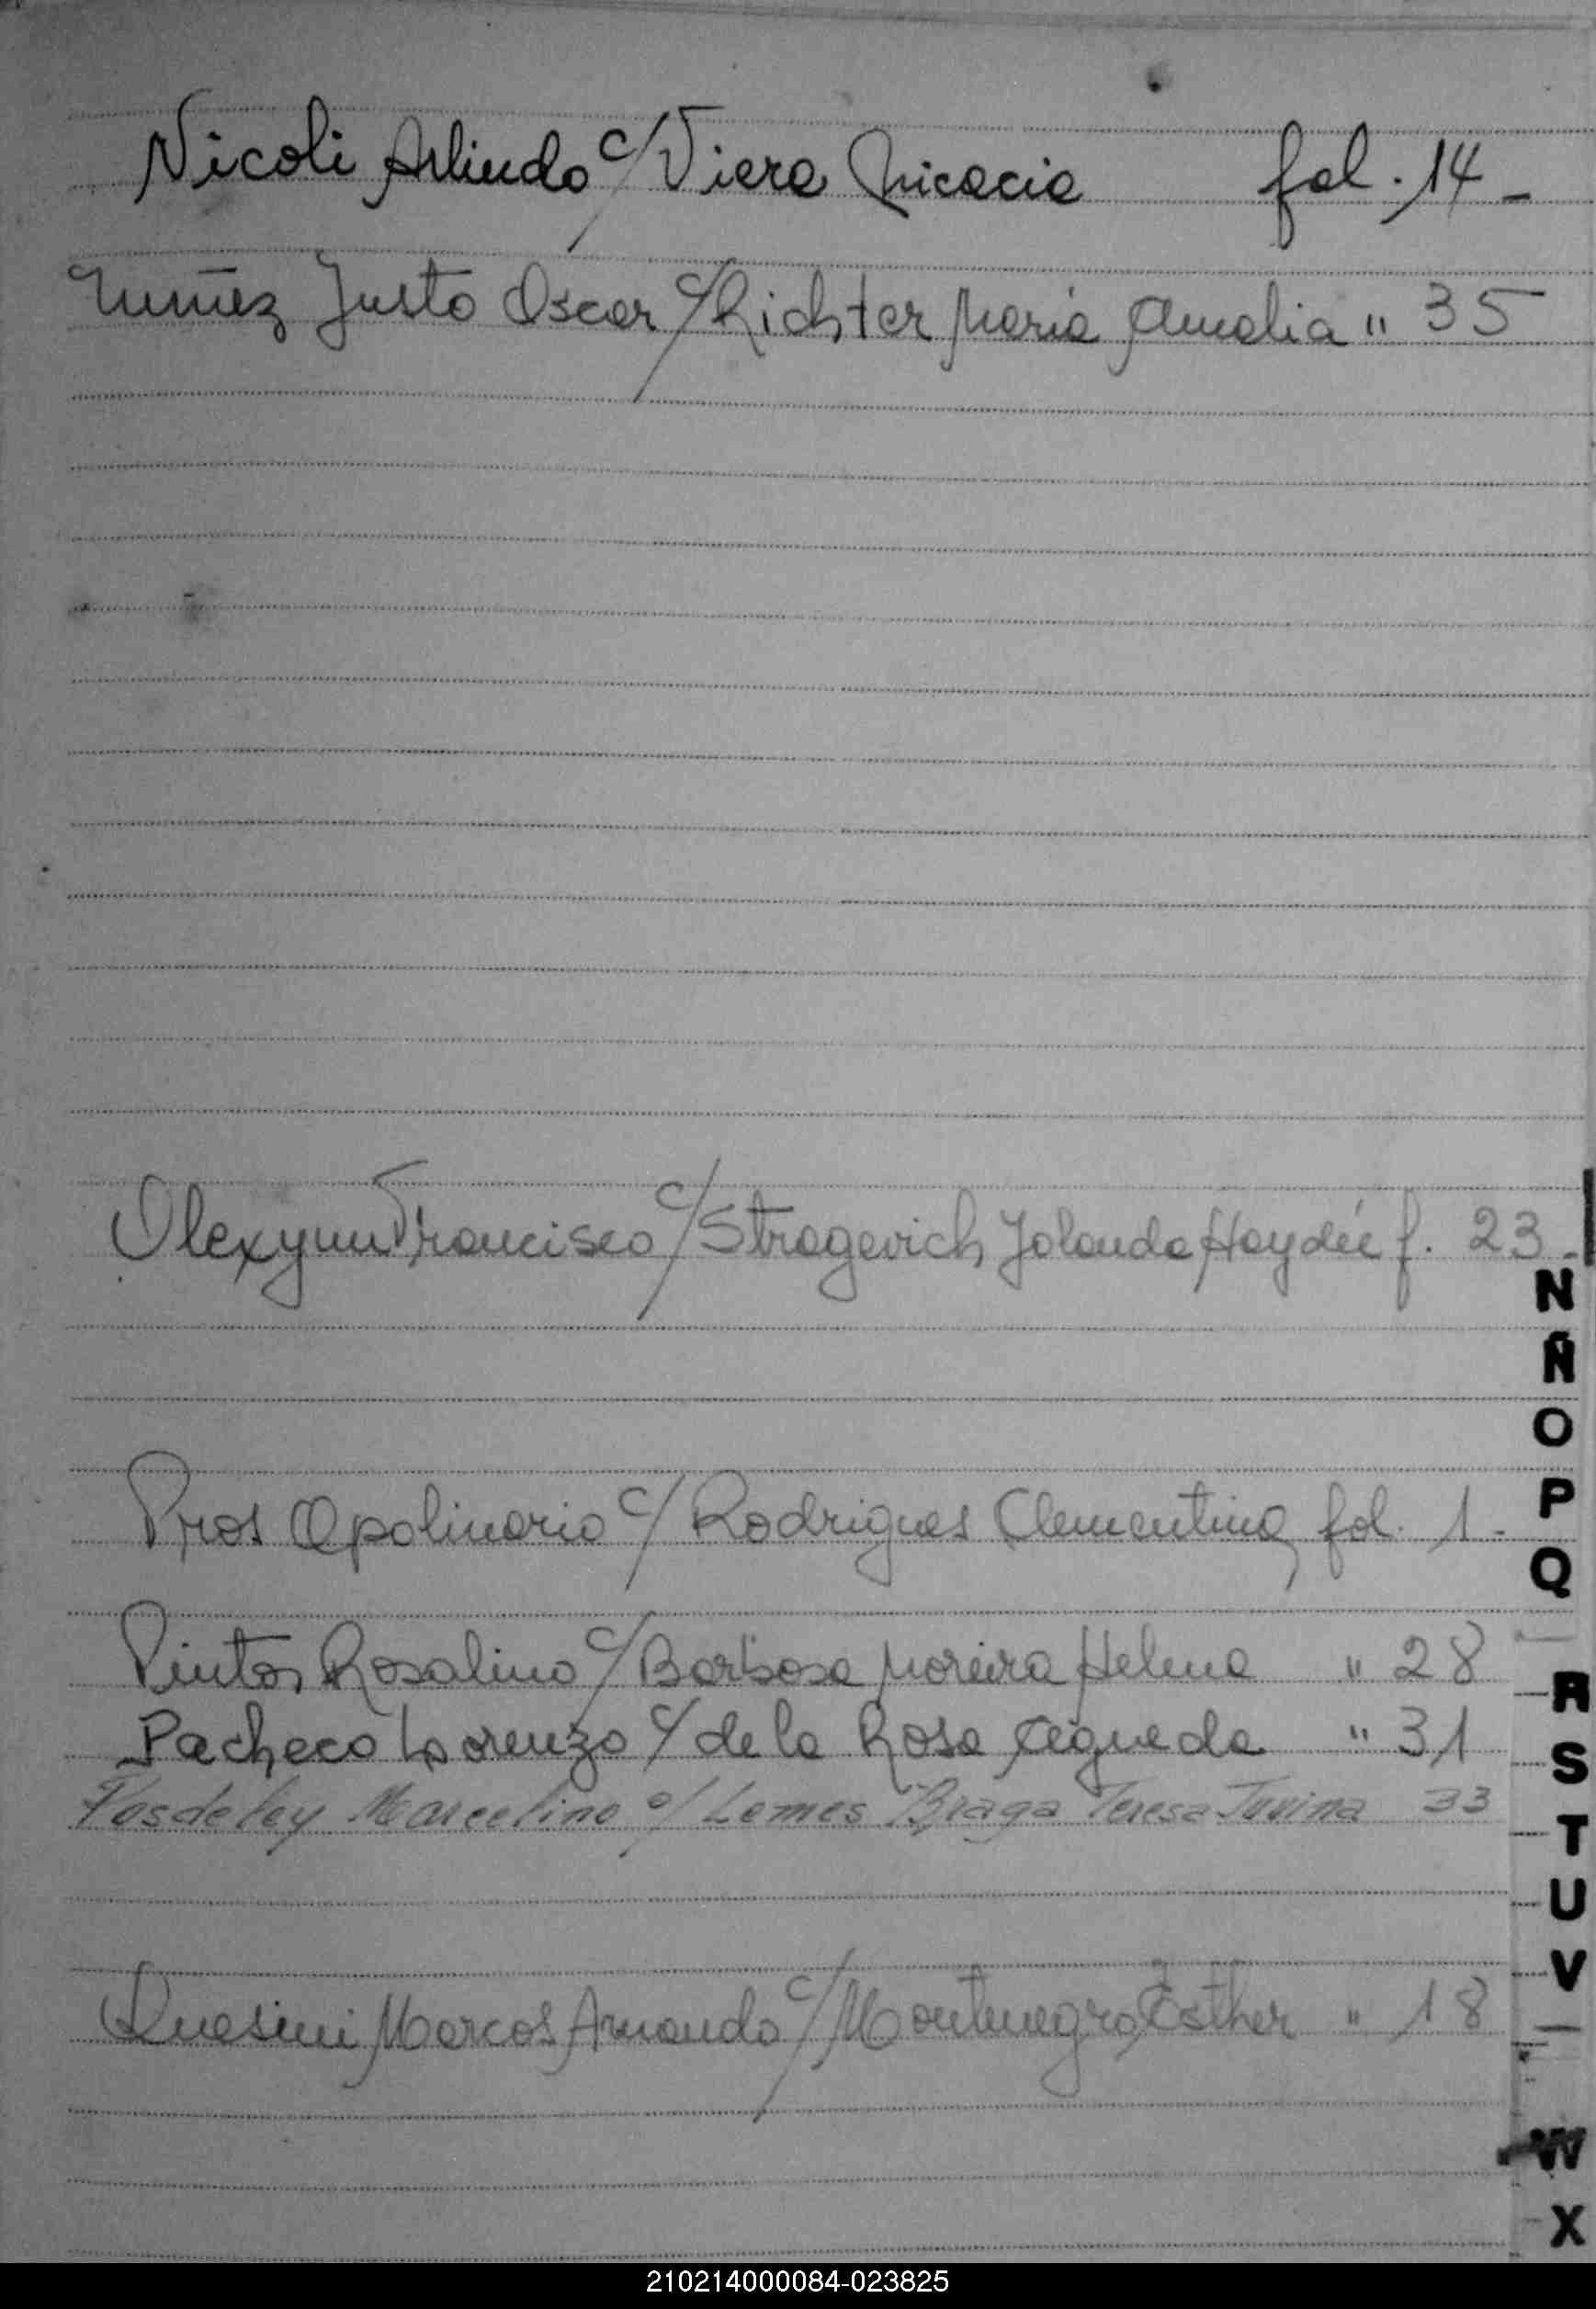 Nicoli Arlindo c/ Viera Nicacia fol. 14 -
Nuñez Justo Oscar c/ Richter Maria Amalia " 35
Olexyun Francisco c/ Stragevich Jolanda Haydée f. 23 -
N
Ñ
O
Pros Apolinario c/ Rodrigues Clementina fol. 1 -
P
Q
Pintos Rosalino c/ Barbosa Moreira Helena " 28
R
Pacheco Lorenzo c/ de la Rosa " 31
S
Marcelino c/ Lemes Braga Teresa 33
T
U
V
Quesini Marcos Armando c/ Montenegro Esther " 18
W
X
210214000084-023825